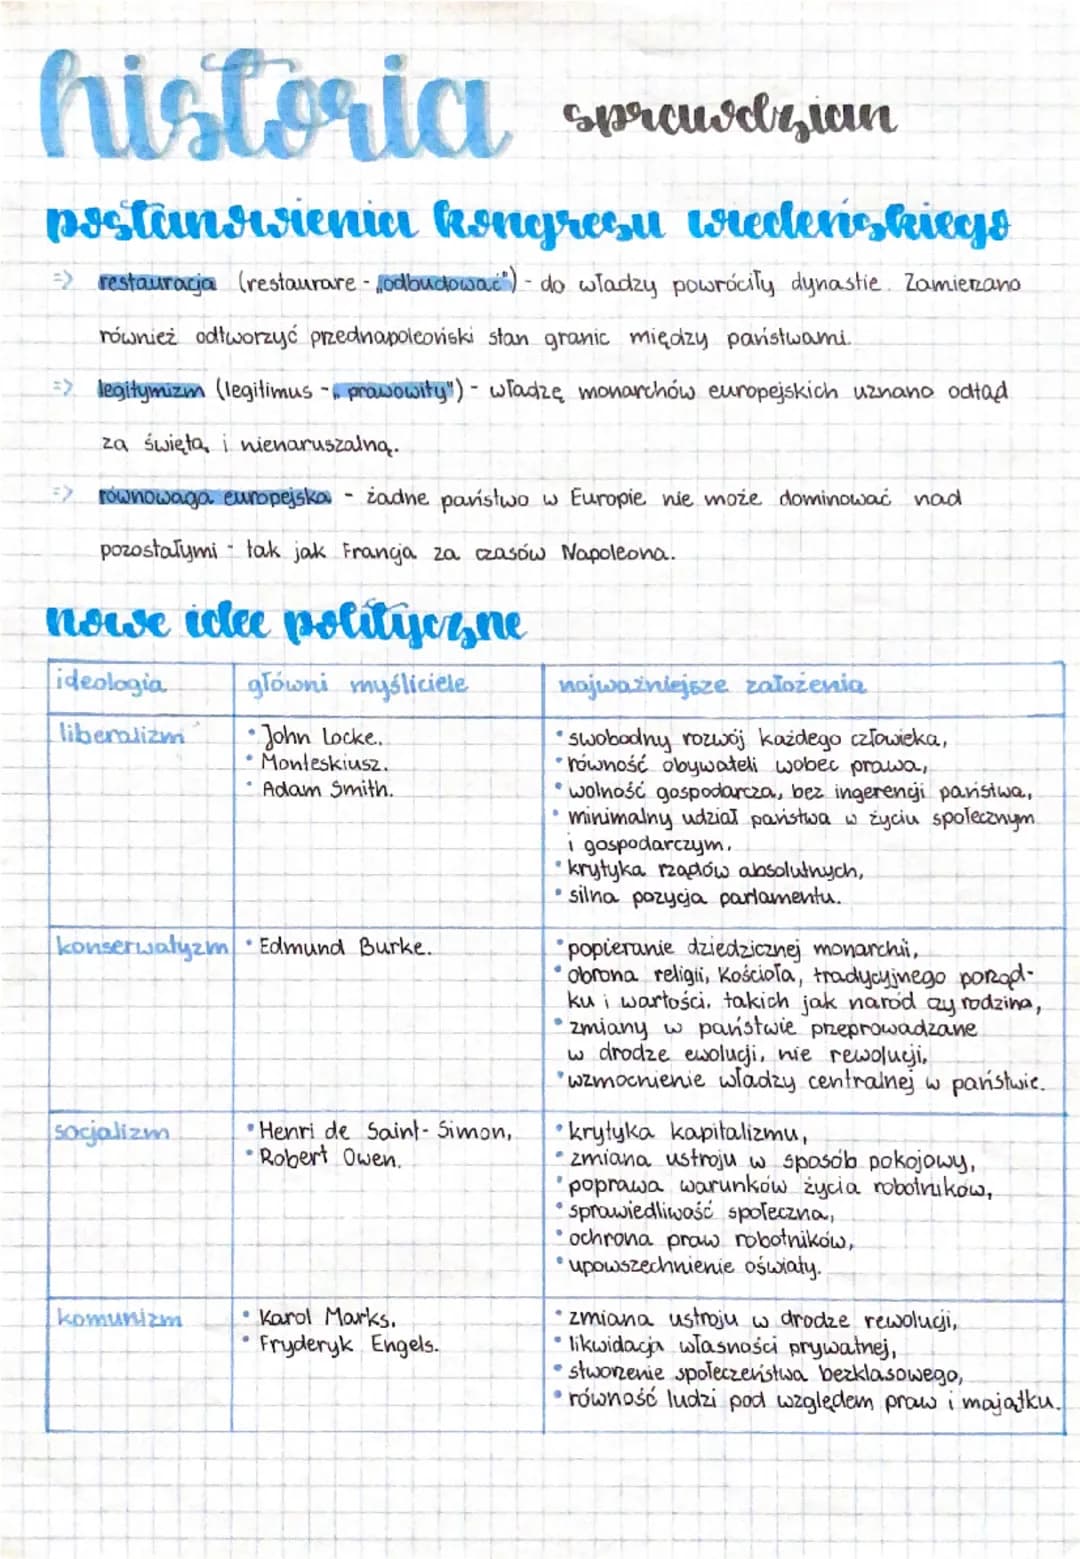 historia sprawdzian
postanowienia kongresu wiedeńskiego
=> restauracja (restaurare - „odbudować") - do władzy powróciły dynastie. Zamierzano
również odtworzyć przednapoleoński stan granic między państwami.
=> legitymizm (legitimus - „prawowity") - władzę monarchów europejskich uznano odtąd
za świętą i nienaruszalną.
=> równowaga europejska - żadne państwo w Europie nie może dominować nad
pozostałymi - tak jak Francja za czasów Napoleona.
nowe idee polityczne
ideologia główni myśliciele najważniejsze założenia
liberalizm
• John Locke,
• Monteskiusz,
• Adam Smith.
• swobodny rozwój każdego człowieka,
• równość obywateli wobec prawa,
• wolność gospodarcza, bez ingerencji państwa,
• minimalny udział państwa w życiu społecznym
i gospodarczym,
• krytyka rządów absolutnych,
• silna pozycja parlamentu.
konserwatyzm
• Edmund Burke.
• popieranie dziedzicznej monarchii,
• obrona religii, Kościoła, tradycyjnego porząd-
ku i wartości, takich jak naród czy rodzina,
• zmiany w państwie przeprowadzane
w drodze ewolucji, nie rewolucji,
• wzmocnienie władzy centralnej w państwie.
socjalizm
• Henri de Saint-Simon,
• Robert Owen.
• krytyka kapitalizmu,
• zmiana ustroju w sposób pokojowy,
• poprawa warunków życia robotników,
• sprawiedliwość społeczna,
• ochrona praw robotników,
• upowszechnienie oświaty.
komunizm
• Karol Marks,
• Fryderyk Engels.
• zmiana ustroju w drodze rewolucji,
• likwidacja własności prywatnej,
• stworzenie społeczeństwa bezklasowego,
• równość ludzi pod względem praw i majątku.